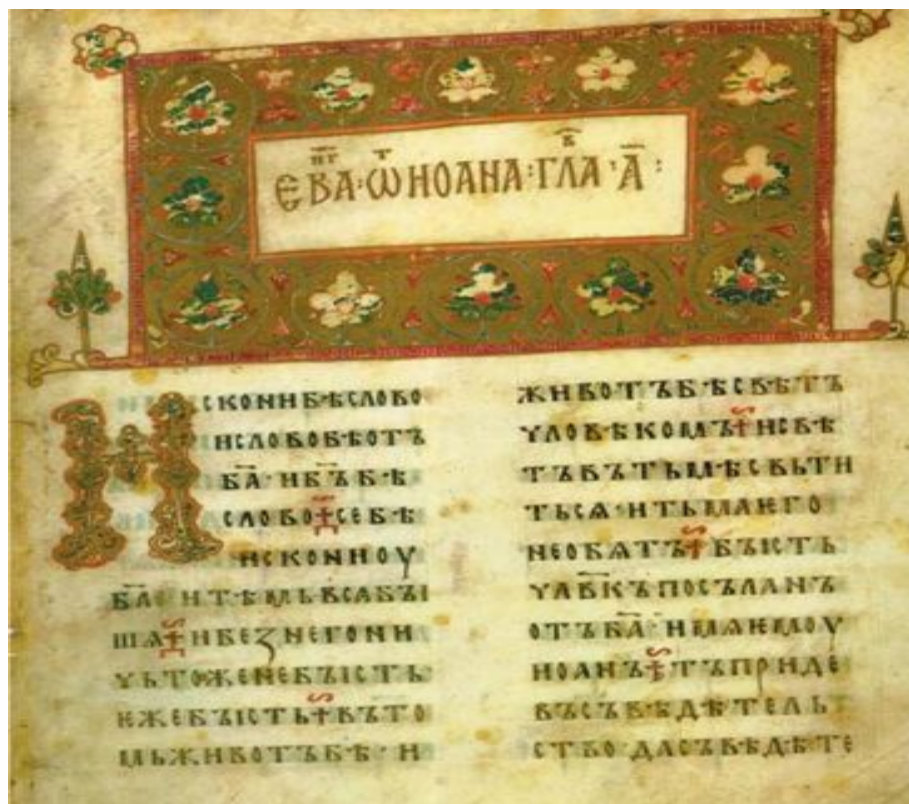 ЕВА҃·Ѿ ИОАНА·ГЛА·А҃:
ИСКОНИБѢСЛОВО
ИСЛОВОБѢОТЪ
БА҃·ИБЪ҃БѢ
СЛОВО·СЕБѢ
ИСКОНИОУ
БА҃·ИТѢМЬВСАБЪІ
ШѦ·ИБЕЗНЕГОНИ
ЧЬТОЖЕНЕБЪІСТЬ
ЕЖЕБЪІСТЬ·ВЪТО
МЬЖИВОТЪБѢ·И
ЖИВОТЪБѢСВѢТЪ
ЧЛОВѢКОМЪ·ИСВѢ
ТЪВЪТЬМѢСВЬТИ
ТЬСѦ·ИТЬМАЕГО
НЕОБѦТЪ·БЪІСТЬ
ЧЛВ҃КЪПОСЪЛАНЪ
ОТЪБА҃·ИМѦЕМОУ
ИОАНЪ·ТЪПРИДЕ
ВЪСЪВѢДѢТЕЛЬ
СТВО·ДАСЪВѢДѢТЕ